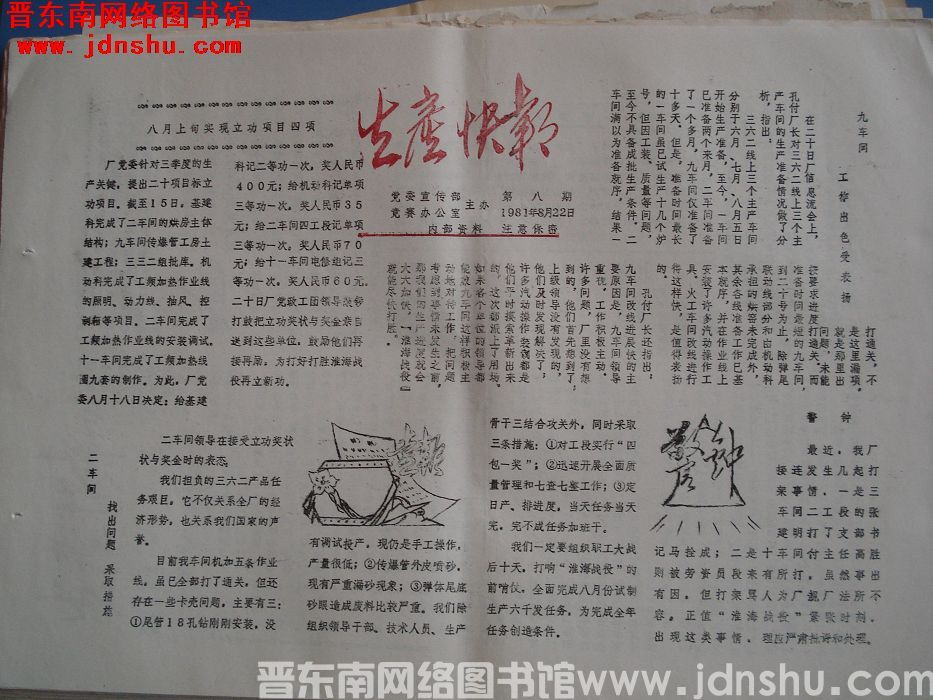 晋东南网络图书馆
www.jdnshu.com
生产快报
党委宣传部
党委办公室 主办
第八期
1981年8月22日
内部资料 注意保密
八月上旬实现立功项目四项
厂党委针对三季度的生
产关键，提出二十项目标立
功项目。截至15日。基建
科完成了二车间的烘房主体
结构；九车间传爆管工房土
建工程；三三二组批库。机
动科完成了工频加热作业线
的照明、动力线、抽风、控
制柜等项目。二车间完成了
工频加热作业线的安装调试。
十一车间完成了工频加热线
圈九套的制作。为此，厂党
委八月十八日决定：给基建
科记二等功一次，奖人民币
400元；给机动科记单项
三等功一次，奖人民币35
元；给二车间四工段记单项
三等功一次。奖人民币70
元；给十一车间电修组记三
等功一次。奖人民币60元。
二十日厂党政工团领导敲锣
打鼓把立功奖状与奖金亲自
送到这些单位，鼓励他们再
接再励，为打好打胜淮海战
役再立新功。
九车间
工作出色受表扬
在二十日厂信息流会上，
孔付厂长对三六二线上三个主
产车间的生产准备情况做了分
析，指出。
三六二线上三个主产车间
分别于六月、七月、八月五日
开始生产准备，至今，一车间
已准备两个来月，二车间准备
了一个多月，九车间仅准备了
十多天。但是，准备时间最长
的一车间虽已试生产十几个炉
号，但因工装、质量等问题，
至今不具备成批生产条件。二
车间满以为准备就序，结果一
打通关，不
是这里漏项。
就是那里出
问题，未能
按要求进度打通关。而
准备时间最短的九车间，
到二十号为止，除弹尾
联动线部分和由机动科
承担的烘窑未完成外，
其余各线准备工作已基
本就序，并在作业线上
安装了许多汽动操作工
具，火工车间改线进行
得这样快，是值得表扬
的。
孔付厂长还指出，
九车间改线进展快的主
要原因是，九车间领导
重视，工作积极主动。
许多问题，厂里没有想
到的，他们首先想到了，
上级领导没有发现的，
他们及时发现解决了。
许多汽动操作装备都是
他们平时摸索革新出来
的，这次都派上了用场。
如果各个单位的领导都
能象九车间这样积极主
动地对待工作，把问题
考虑到要情来发生之前，
那我们的生产进度就会
大大加快，“淮海战役”
就能尽快打胜。
二车间
找出问题 采取措施
二车间领导在接受立功奖状
状与奖金时的表态。
我们担负的三六二产品任
务艰巨。它不仅关系全厂的经
济形势，也关系我们国家的声
誉。
目前我车间机加五条作业
线，虽已全部打了通关，但还
存在一些卡壳问题，主要有三：
①尾管18孔钻刚刚安装，没
有调试投产，现仍是手工操作，
产量很低；②传爆管外皮喷砂，
现有严重漏砂现象；③弹体尾底
砂眼造成废料比较严重。我们除
组织领导干部、技术人员、生产
骨干三结合攻关外，同时采取
三条措施：①对工段实行“四
包一奖”；②迅速开展全面质
量管理和七查七整工作；③定
日产、排进度，当天任务当天
完。完不成任务加班干。
我们一定要组织职工大战
后十天，打响“淮海战役”的
前哨仗，全面完成八月份试制
生产六千发任务，为完成全年
任务创造条件。
警钟
警钟
最近，我厂
接连发生几起打
架事情，一是三
车间二工段的张
建明打了支部书
记马拴成；二是十车间付主任高胜
则被劳资员段来有所打。虽然事出
有因，但打架骂人为厂规厂法所不
容。正值“淮海战役”紧张时刻。
出现这类事情，理应严肃批评和处理。
晋东南网络图书馆 www.jdnshu.com